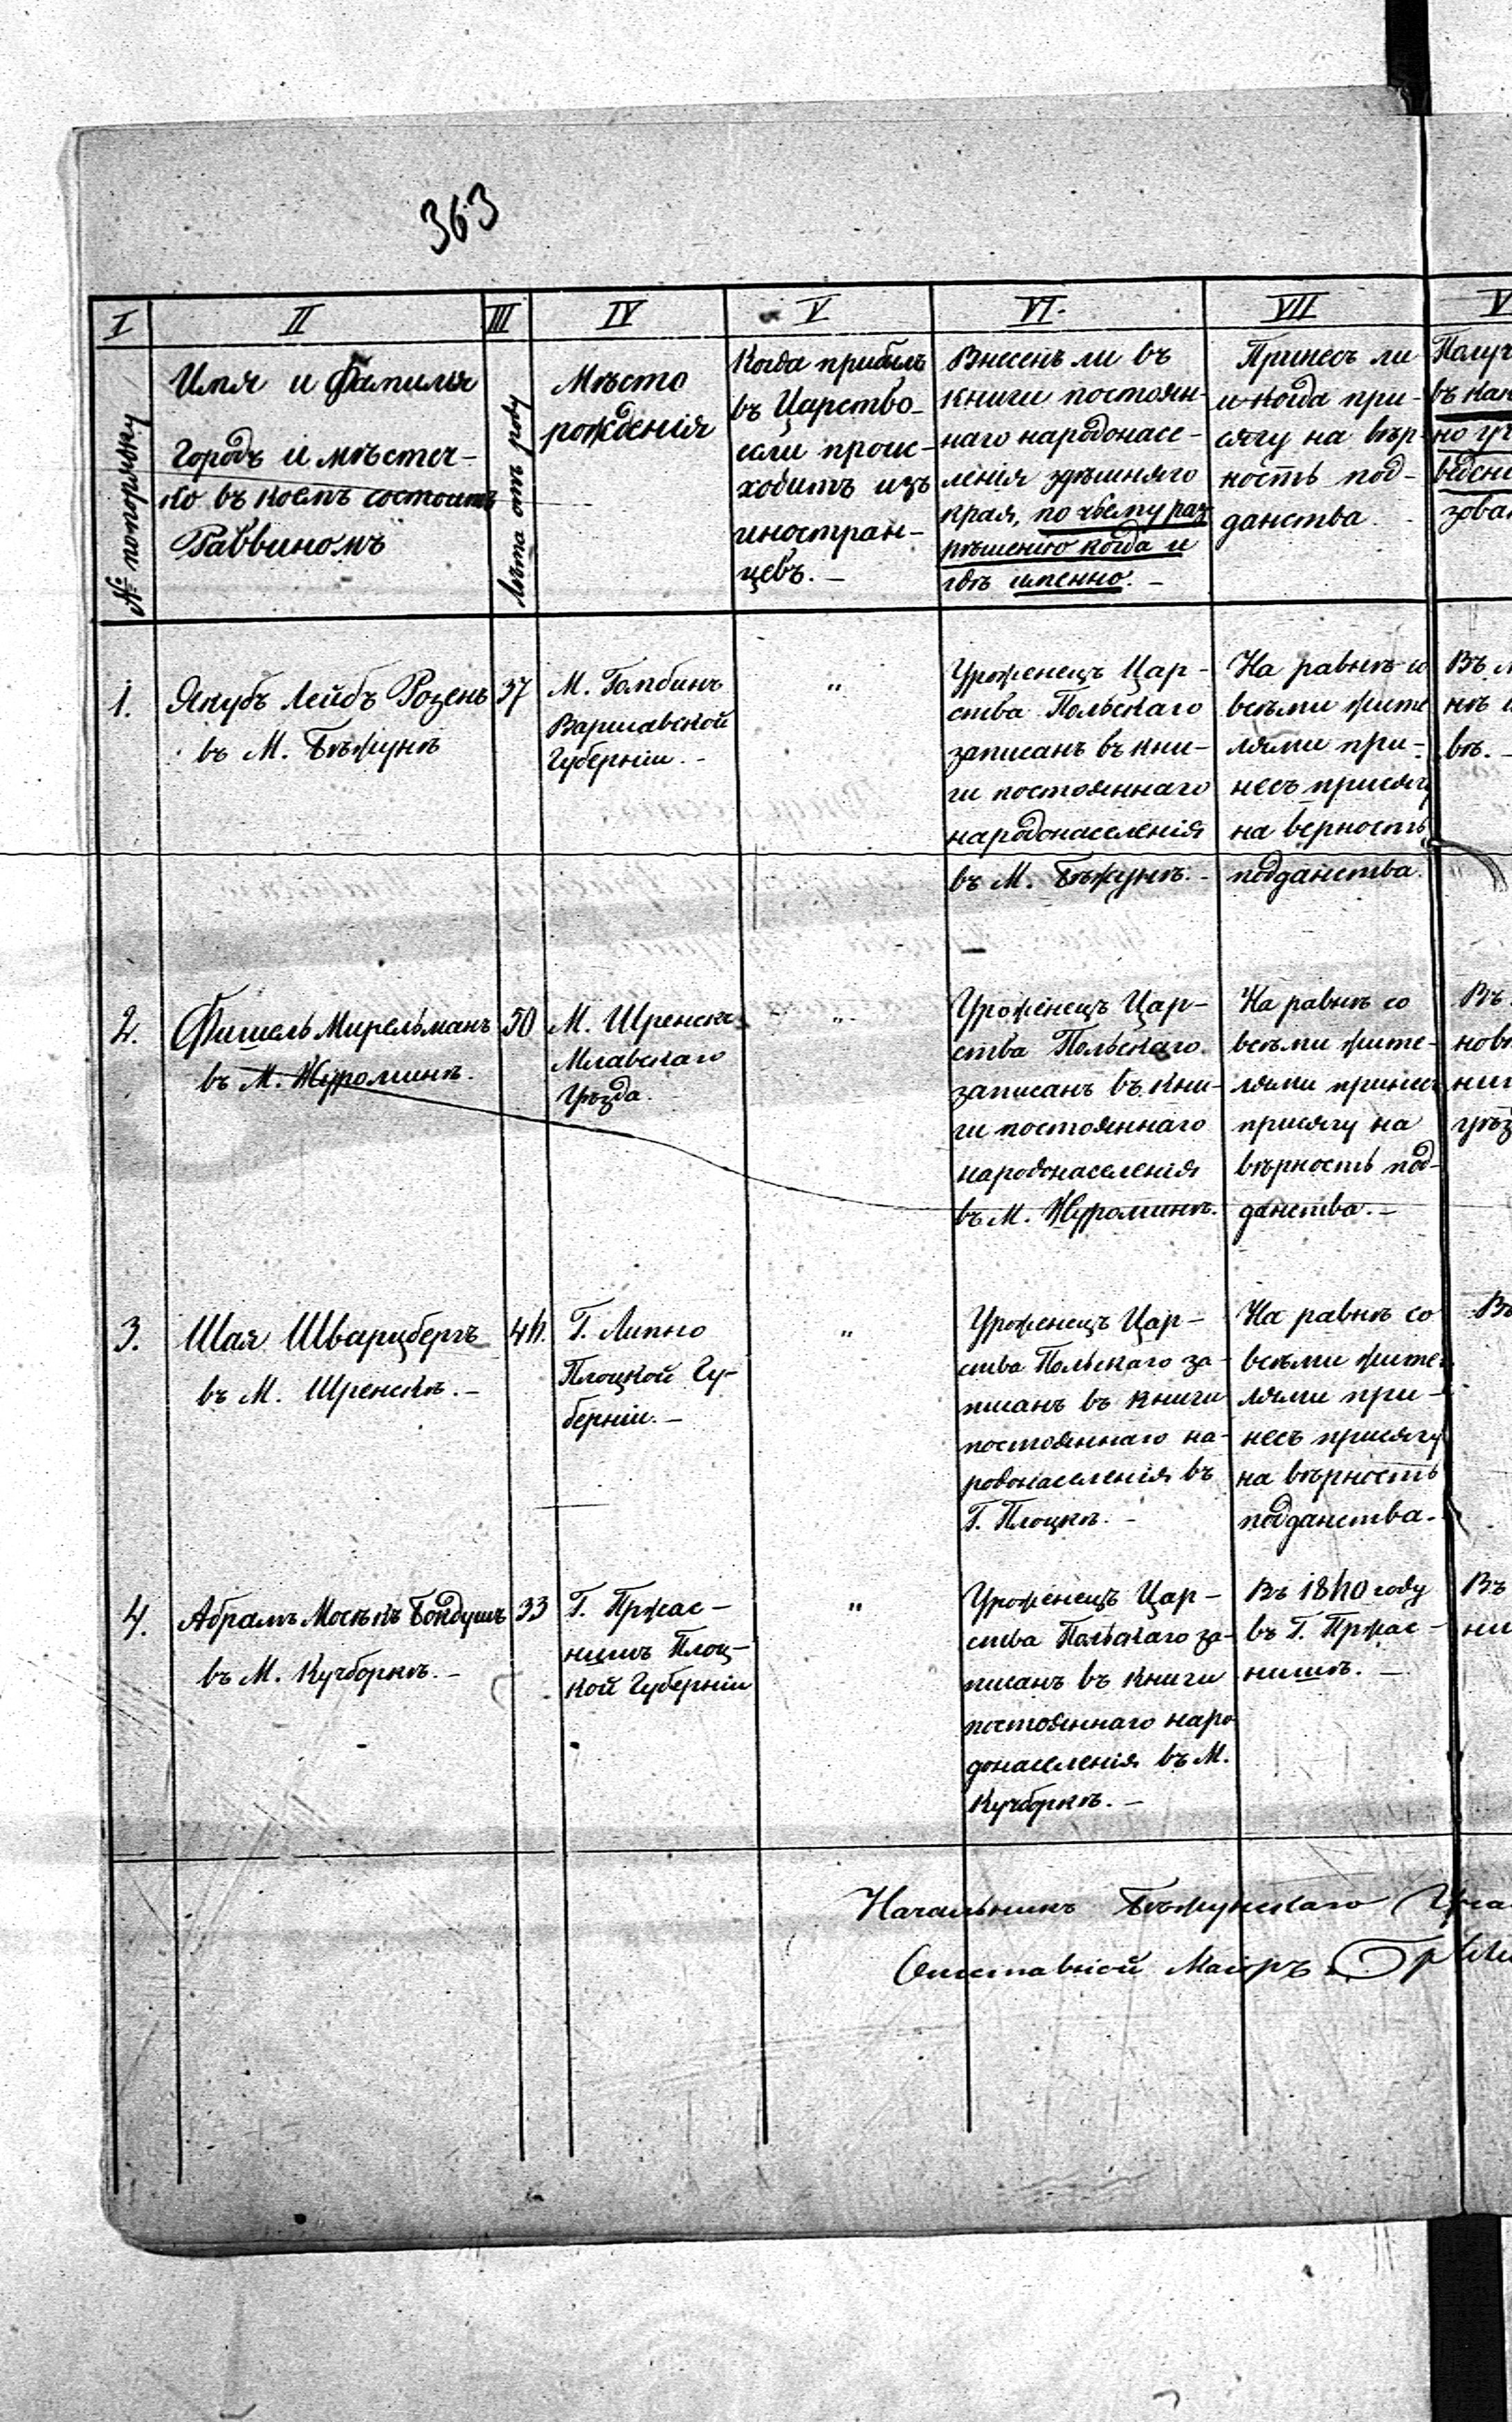 363
I II III IV V VI. VII V
№ попорядку
Имя и Фамилія
Городъ и мѣстеч-
ко въ коемъ состоитъ
Раввиномъ
Лѣта отъ роду
Мѣсто
рожденія
Когда прибылъ
въ Царство
если проис-
ходитъ изъ
иностран-
цевъ. -
Внесенъ ли въ
книги постоян-
наго народонасе-
ленія здѣшняго
края, по чьему раз
рѣшенію когда и
гдѣ именно. -
Принесъ ли
и когда при-
сягу на вѣр-
ность под-
данства.
Получ
въ как
но уч
веден
зован
1.
Якубъ Лейбъ Розенъ
въ М. Бѣжунѣ
37
М. Гомбинъ
Варшавской
Губерніи. -
"
Уроженецъ Цар-
ства Польскаго
записанъ въ кни-
ги постояннаго
народонаселенія
въ М. Бѣжунѣ. -
На равнѣ со
всѣми жите
лями при-
несъ присягу
на верность
подданства.
Въ
вѣ. -
2.
Фишель Мирельманъ
въ М. Журоминѣ.
50
М. Шренскъ
Млавскаго
Уѣзда.
"
Уроженецъ Цар-
ства Польскаго
записанъ въ кни-
ги постояннаго
народонаселенія
въ М. Журоминѣ.
На равнѣ со
всѣми жите-
лями принесъ
присягу на
вѣрность под-
данства. -
Въ
нов
ни
уѣз
3.
Шая Шварцбергъ
въ М. Шренскѣ. -
44.
Г. Липно
Плоцкой Гу-
берніи. -
"
Уроженецъ Цар-
ства Польскаго за-
писанъ въ книги
постояннаго на-
родонаселенія въ
Г. Плоцкѣ. -
На равнѣ со
всѣми жите-
лями при-
несъ присягу
на вѣрность
подданства. -
Въ
4.
Абрамъ Мосѣкъ Бондушъ
въ М. Кучборкѣ. -
33
Г. Пржас-
нишъ Плоц-
кой Губерніи
"
Уроженецъ Цар-
ства Польскаго за-
писанъ въ книги
постояннаго наро
донаселенія въ М.
Кучборкѣ. -
Въ 1840 году
въ Г. Пржас-
нишѣ. -
Въ
ни
Начальникъ Бѣжунскаго
Отставной Маіоръ